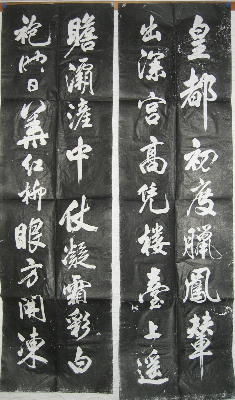 皇都初度臘鳳輦
出深宮高凭樓臺上遥
瞻灞滻中仗凝霜彩白
袍映日華紅柳眼方開凍